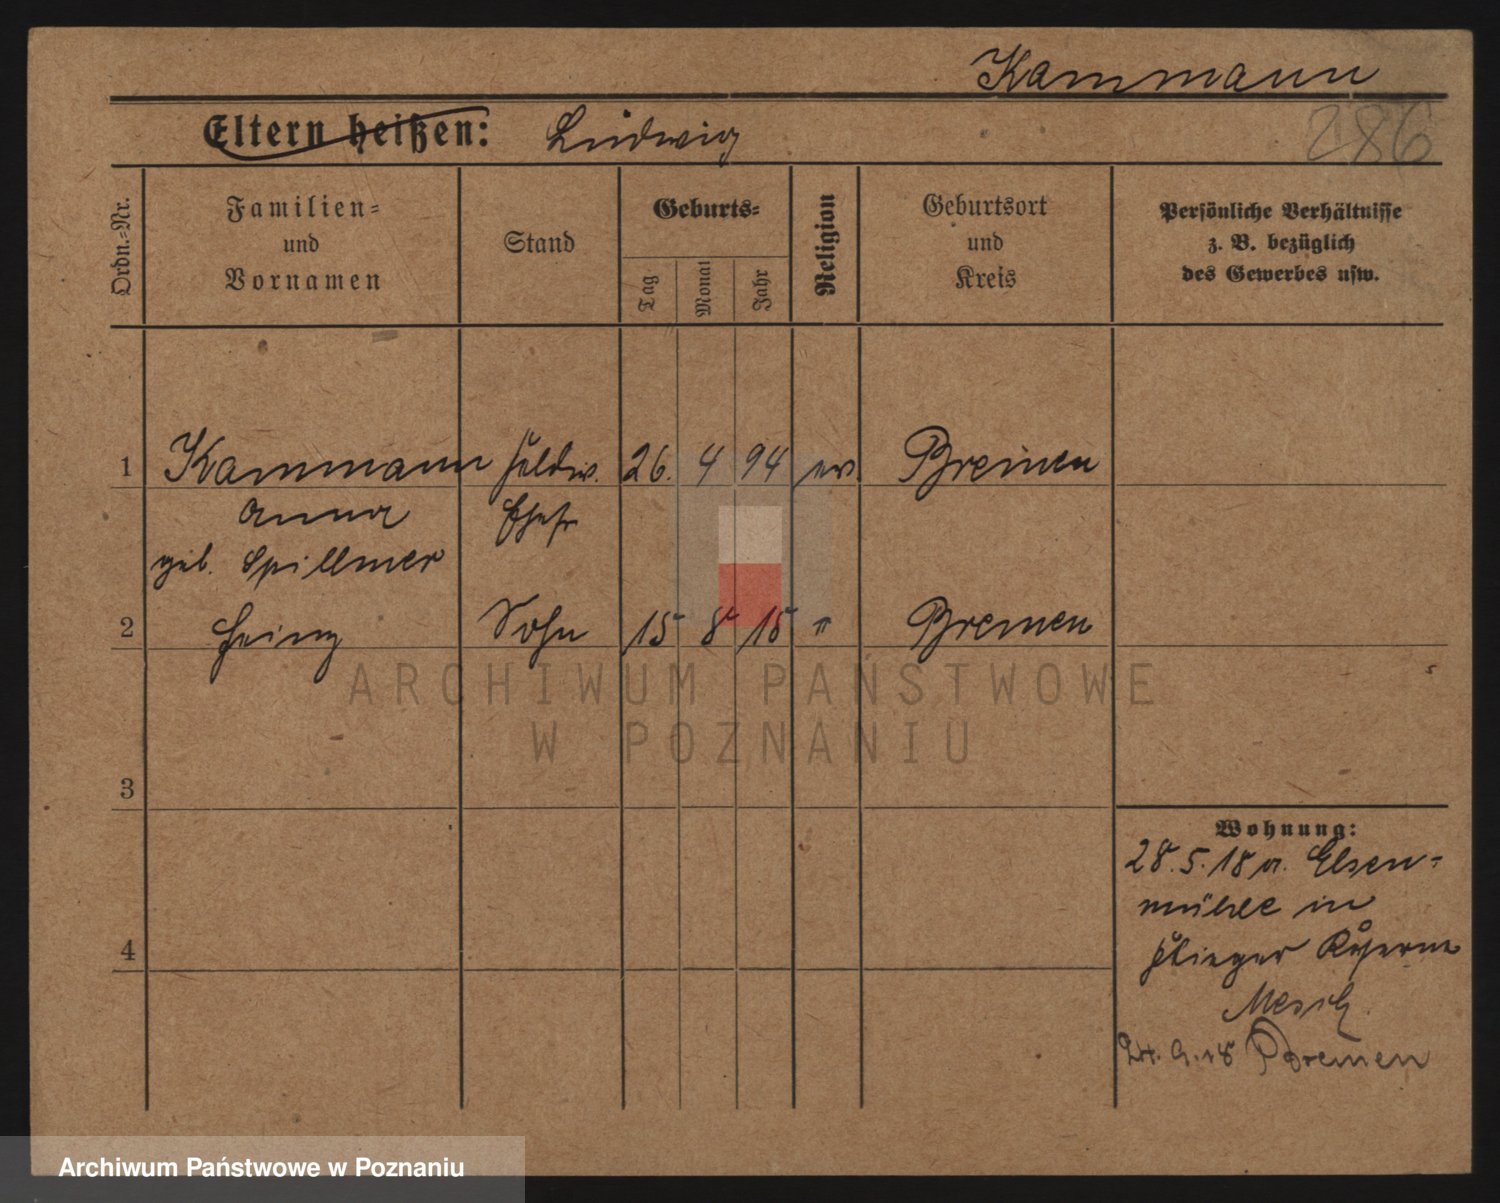 Kammann
286
Eltern heißen: Ludwig
Ordn.-Nr.
Familien-
und
Vornamen
Stand
Geburts-
Tag
Monat
Jahr
Religion
Geburtsort
und
Kreis
Persönliche Verhältnisse
z. B. bezüglich
des Gewerbes usw.
1 Kammann Feldw. 26. 4 94 ev. Bremen
Anna Ehefr
geb. Spillmer
2 Heinz Sohn 15 8 15 " Bremen
ARCHIWUM PAŃSTWOWE
W POZNANIU
3
Wohnung:
28.5.18 a. Elsen-
mühle in
4
Flieger
24.9.18 Bremen
Archiwum Państwowe w Poznaniu